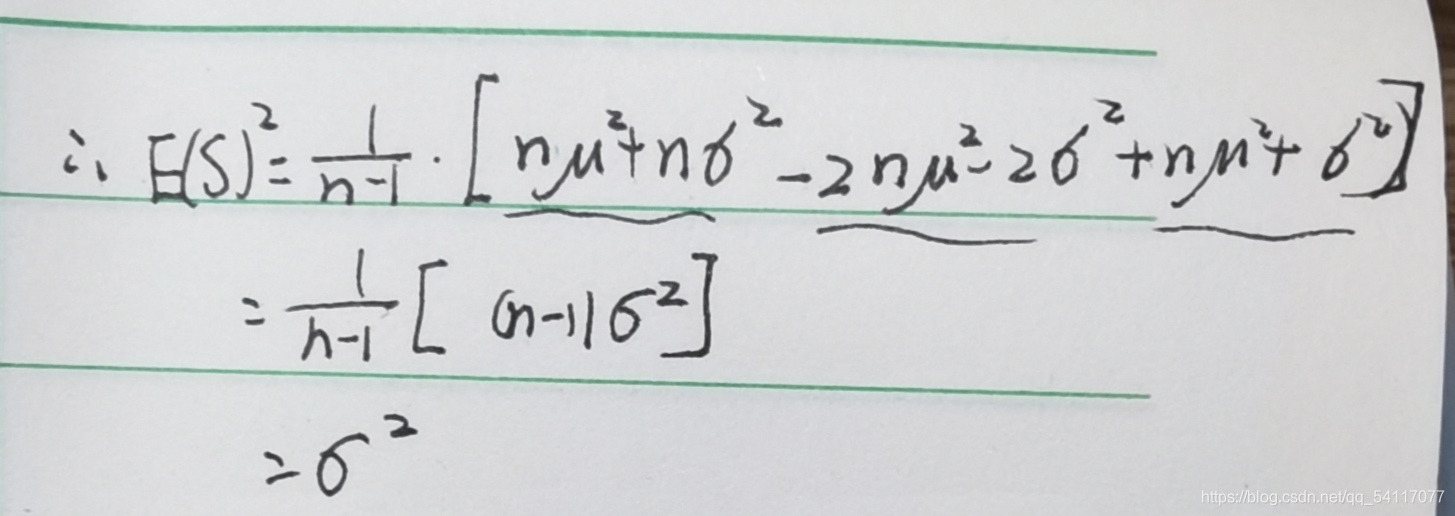 ∴ E(S)² = 1/(n-1) · [nμ²+nσ² -2nμ²-2σ²+nμ²+σ²]
= 1/(n-1) [(n-1)σ²]
= σ²
https://blog.csdn.net/qq_54117077